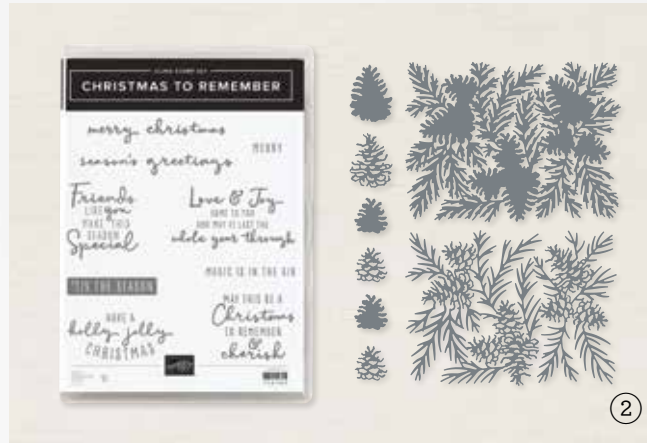 CLING STAMP SET
CHRISTMAS TO REMEMBER
merry christmas
MERRY
season's greetings
Friends
LIKE you
MAKE THIS
SEASON
Special
Love & Joy
COME TO YOU
AND MAY IT LAST THE
whole year through
MAGIC IS IN THE AIR
'TIS THE SEASON
HAVE A
holly jolly
CHRISTMAS
MAY THIS BE A
Christmas
TO REMEMBER
&
cherish
2